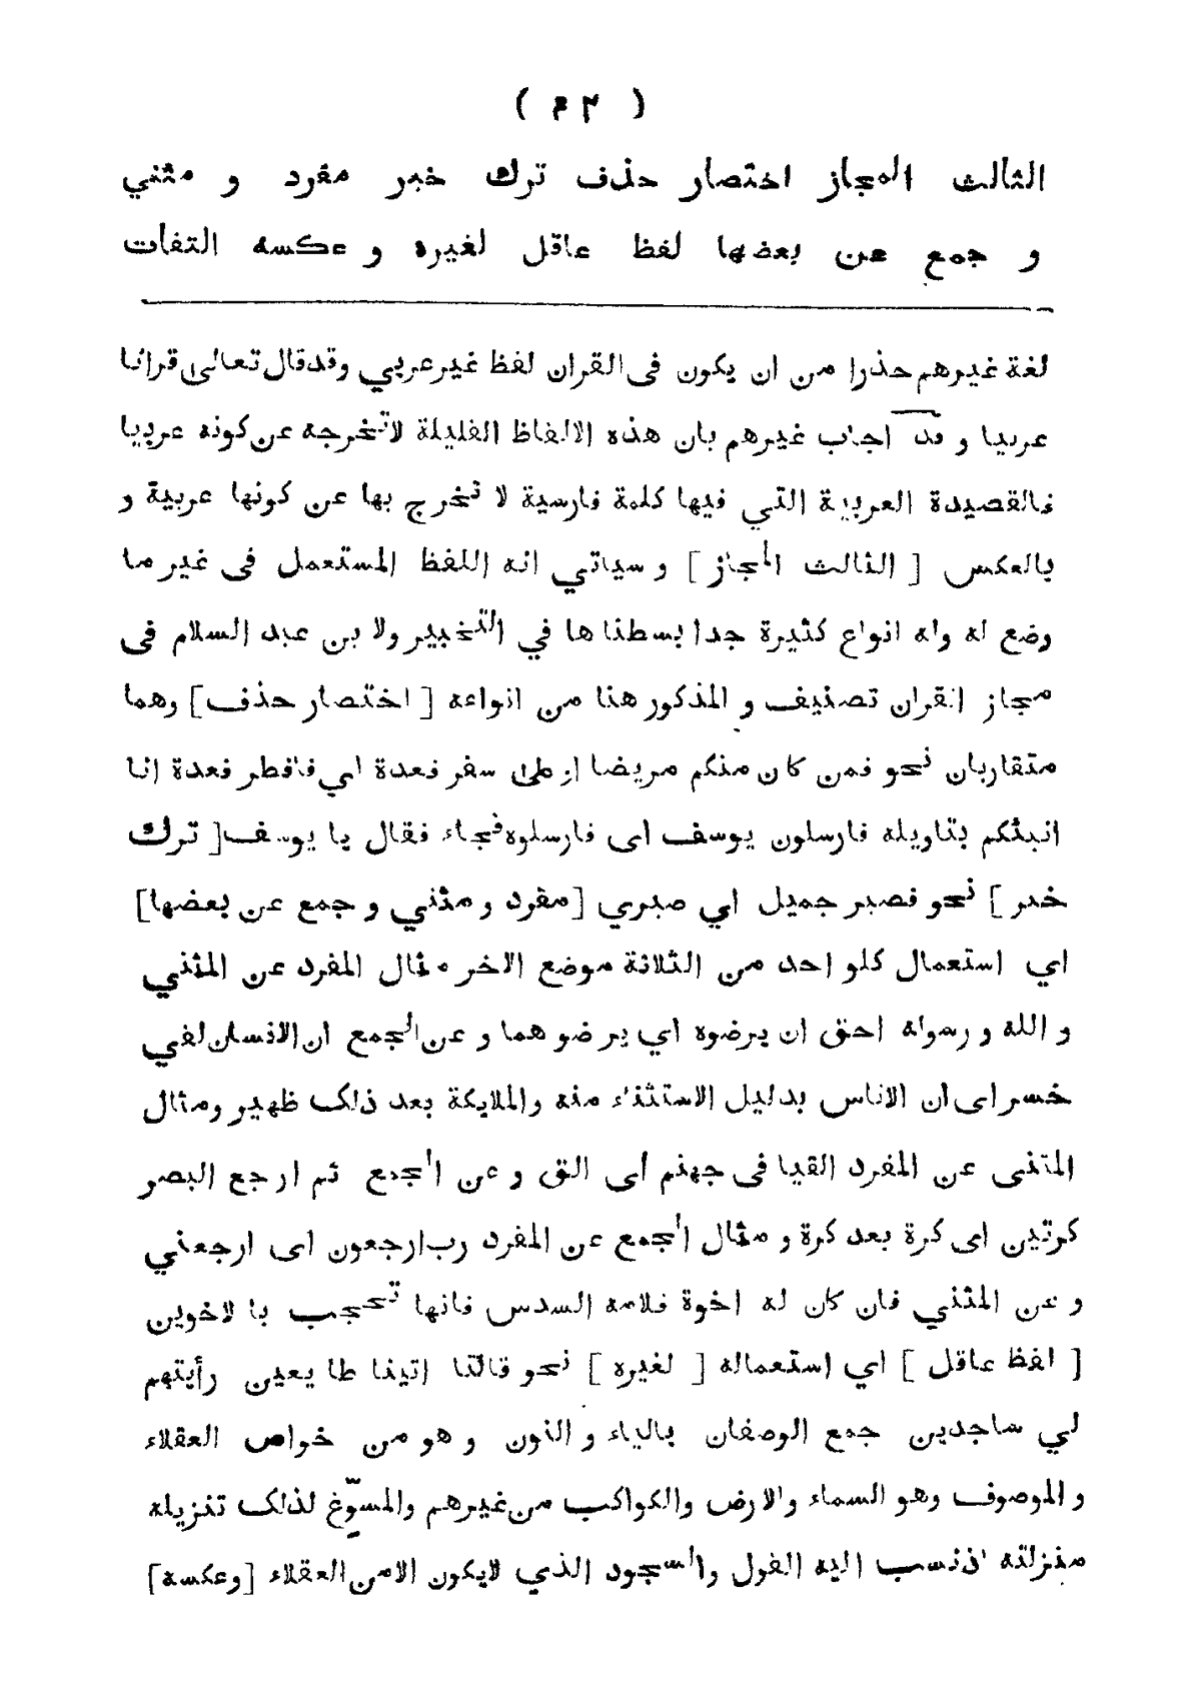 ( ٢٤ )
الثالث المجاز اختصار حذف ترك خبر مفرد و مثني
و جمع عن بعضها لفظ عاقل لغيره و عكسه التفات
لغة غيرهم حذرا من ان يكون فى القران لفظ غير عربي وقد قال تعالى قرانا
عربيا و قد اجاب غيرهم بان هذه الالفاظ القليلة لاتخرجه عن كونه عربيا
فالقصيدة العربية التي فيها كلمة فارسية لا تخرج بها عن كونها عربية و
بالعكس [ الثالث المجاز ] و سياتي انه اللفظ المستعمل فى غير ما
وضع له وله انواع كثيرة جدا بسطناها في التخبير ولا بن عبد السلام فى
مجاز القران تصنيف و المذكور هنا من انواعه [ اختصار حذف ] وهما
متقاربان نحو فمن كان منكم مريضا او على سفر فعدة اي فافطر فعدة انا
انبئكم بتاويله فارسلون يوسف اى فارسلوه فجاء فقال يا يوسف [ ترك
خبر ] نحو فصبر جميل اي صبري [مفرد و مثني و جمع عن بعضها]
اي استعمال كلو احد من الثلاثة موضع الاخر مثال المفرد عن المثني
و الله و رسوله احق ان يرضوه اي يرضو هما و عن الجمع ان الانسان لفي
خسر اى ان الاناس بدليل الاستثناء منه والملايكة بعد ذلك ظهير ومثال
المثنى عن المفرد القيا فى جهنم اى الق و عن الجمع ثم ارجع البصر
كرتين اى كرة بعد كرة و مثال الجمع عن المفرد رب ارجعون اى ارجعني
و عن المثني فان كان له اخوة فلامه السدس فانها تحجب با لاخوين
[ لفظ عاقل ] اي استعماله [ لغيره ] نحو قالتا اتينا طا يعين رأيتهم
لي ساجدين جمع الوصفان بالياء و النون و هو من خواص العقلاء
و الموصوف وهو السماء والارض والكواكب من غيرهم والمسوّغ لذلك تنزيله
منزلته اذ نسب اليه القول والسجود الذي لايكون الامن العقلاء [وعكسه]